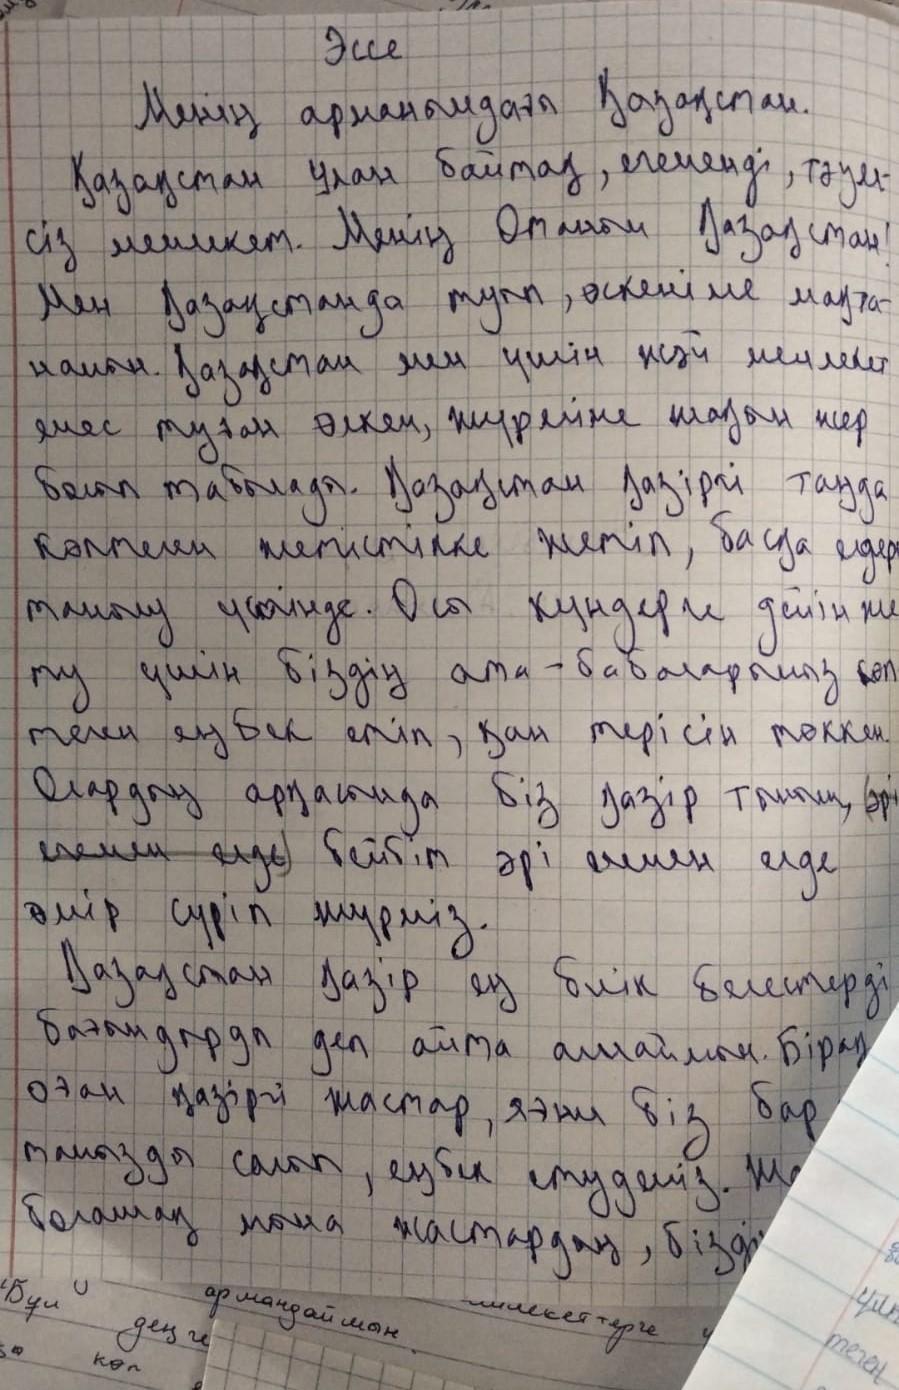 Эссе
Менің арманымдағы Қазақстан.
Қазақстан ұлан байтақ, егеменді, тәуел-
сіз мемлекет. Менің Отаным Қазақстан!
Мен Қазақстанда туып, өскеніме мақта-
намын. Қазақстан мен үшін жәй мемлекет
емес туған өлкем, жүрегіме жақын жер
болып табылады. Қазақстан қазіргі таңда
көптеген жетістікке жетіп, басқа елдерге
танылу үстінде. Осы күндерге дейін же
ту үшін біздің ата-бабаларымыз көп
теген еңбек етіп, қан терісін төккен.
Олардың арқасында біз қазір тыныш, әрі
егемен елде бейбіт әрі егемен елде
өмір сүріп жүрміз.
Қазақстан қазір ең биік белестерді
бағындырды деп айта алмаймын. Бірақ
оған қазіргі жастар, яғни біз бар
тамызды салып, еңбек етудеміз.
болашақ мына жастардың,
"Бұл армандаймын мемлекеттерге
деңге
көп
теген